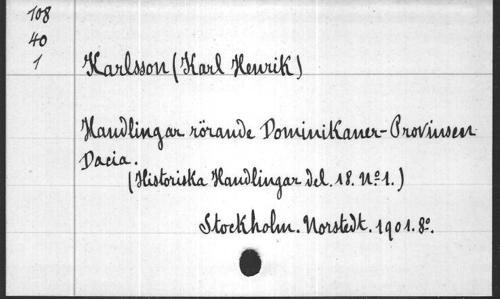 108
40
1
Karlsson (Karl Henrik)
Handlingar rörande Dominikaner-Provinsen
Dacia.
(Historiska Handlingar del. 18. No 1.)
Stockholm. Norstedt. 1901. 8o.